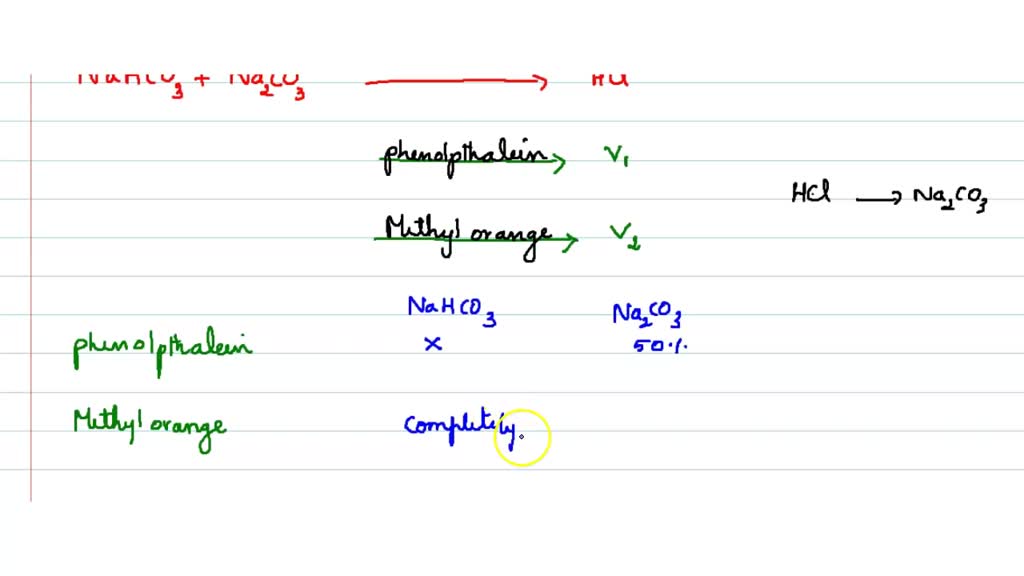 NaHCO3 + Na2CO3 → HCl
phenolpthalein → V1
HCl → Na2CO3
Methyl orange → V2
NaHCO3 Na2CO3
phenolpthalein × 50%
Methyl orange Completely